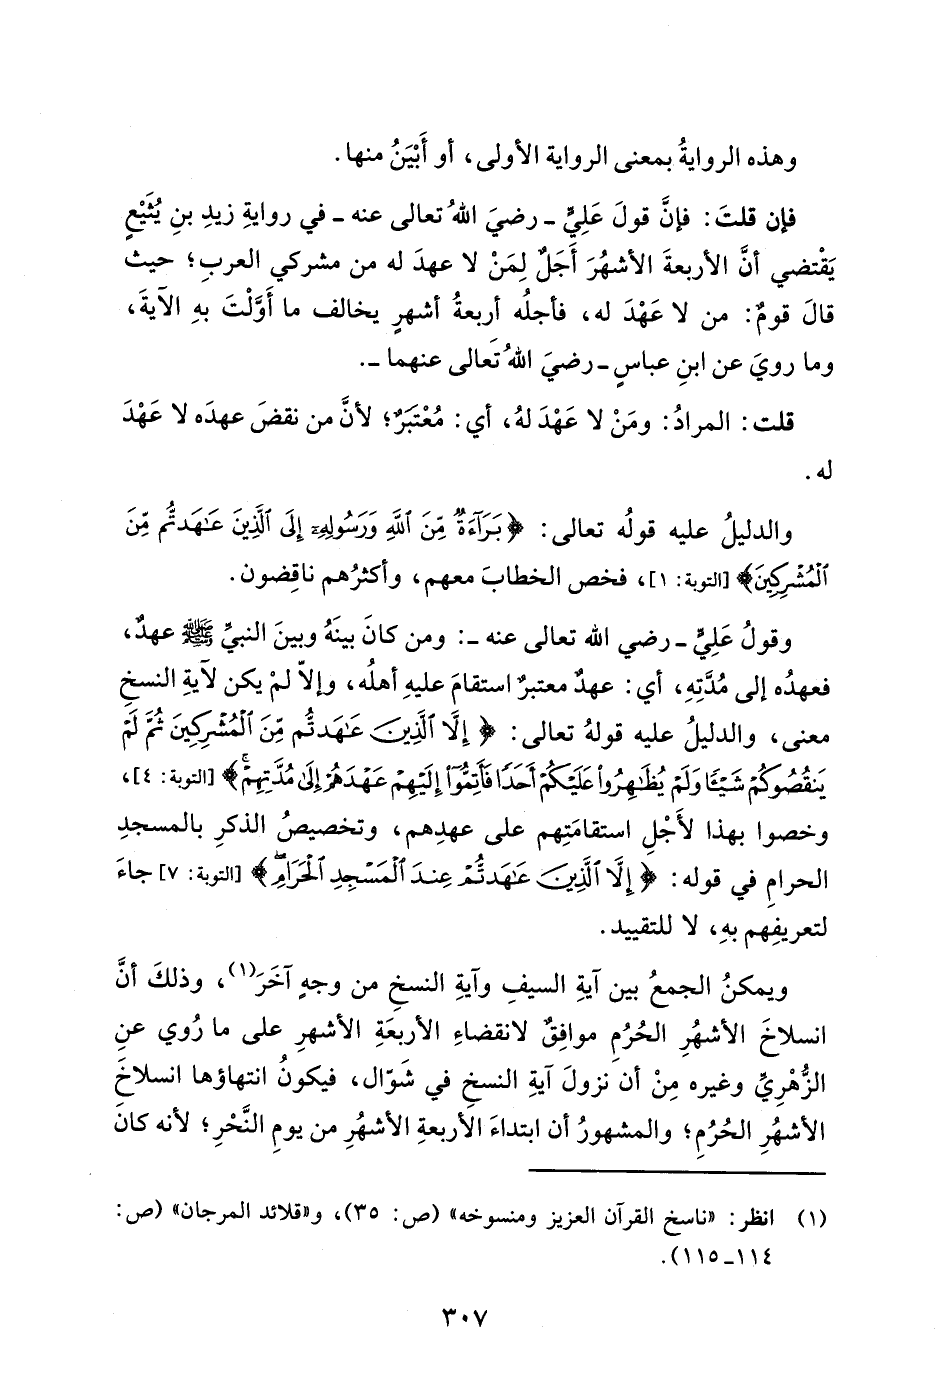 وهذه الروايةُ بمعنى الرواية الأولى، أو أَبْيَنُ منها.
فإن قلتَ: فإنَّ قولَ عَلِيٍّ ـ رضيَ اللهُ تعالى عنه ـ في روايةِ زيدِ بنِ يُثَيْعٍ
يَقْتضي أنَّ الأربعةَ الأشهُرَ أَجَلٌ لِمَنْ لا عهدَ له من مشركي العربِ؛ حيث
قالَ قومٌ: من لا عَهْدَ له، فأجلُه أربعةُ أشهرٍ يخالف ما أَوَّلْتَ بهِ الآيةَ،
وما رويَ عن ابنِ عباسٍ ـ رضيَ اللهُ تَعالى عنهما ـ.
قلت: المرادُ: ومَنْ لا عَهْدَ لهُ، أي: مُعْتَبَرٌ؛ لأنَّ من نقضَ عهدَه لا عَهْدَ
له.
والدليلُ عليه قولُه تعالى: ﴿بَرَآءَةٌ مِّنَ ٱللَّهِ وَرَسُولِهِۦٓ إِلَى ٱلَّذِينَ عَـٰهَدتُّم مِّنَ
ٱلْمُشْرِكِينَ﴾ [التوبة: ١]، فخص الخطابَ معهم، وأكثرُهم ناقِضون.
وقولُ عَلِيٍّ ـ رضي الله تعالى عنه ـ: ومن كانَ بينَهُ وبينَ النبيِّ ﷺ عهدٌ،
فعهدُه إلى مُدَّتِهِ، أي: عهدٌ معتبرٌ استقامَ عليهِ أهلُه، وإلاّ لمْ يكن لآيةِ النسخِ
معنى، والدليلُ عليه قولهُ تعالى: ﴿إِلَّا ٱلَّذِينَ عَـٰهَدتُّم مِّنَ ٱلْمُشْرِكِينَ ثُمَّ لَمْ
يَنقُصُوكُمْ شَيْـًٔا وَلَمْ يُظَـٰهِرُوا۟ عَلَيْكُمْ أَحَدًا فَأَتِمُّوٓا۟ إِلَيْهِمْ عَهْدَهُمْ إِلَىٰ مُدَّتِهِمْ ۚ﴾ [التوبة: ٤]،
وخصوا بهذا لأَجْلِ استقامَتِهم على عهدِهم، وتخصيصُ الذكرِ بالمسجدِ
الحرامِ في قوله: ﴿إِلَّا ٱلَّذِينَ عَـٰهَدتُّمْ عِندَ ٱلْمَسْجِدِ ٱلْحَرَامِ ۖ﴾ [التوبة: ٧] جاءَ
لتعريفِهم بهِ، لا للتقييد.
ويمكنُ الجمعُ بين آيةِ السيفِ وآيةِ النسخِ من وجهٍ آخَرَ(١)، وذلكَ أنَّ
انسلاخَ الأشهُرِ الحُرُمِ موافِقٌ لانقضاءِ الأربعَةِ الأشهرِ على ما رُوي عنِ
الزُّهْرِيِّ وغيره مِنْ أن نزولَ آيةِ النسخِ في شوّال، فيكونُ انتهاؤها انسلاخَ
الأشهُرِ الحُرُمِ؛ والمشهورُ أن ابتداءَ الأربعةِ الأشهُرِ من يومِ النَّحْرِ؛ لأنه كانَ
(١) انظر: «ناسخ القرآن العزيز ومنسوخه» (ص: ٣٥)، و«قلائد المرجان» (ص:
١١٤ـ١١٥).
٣٠٧